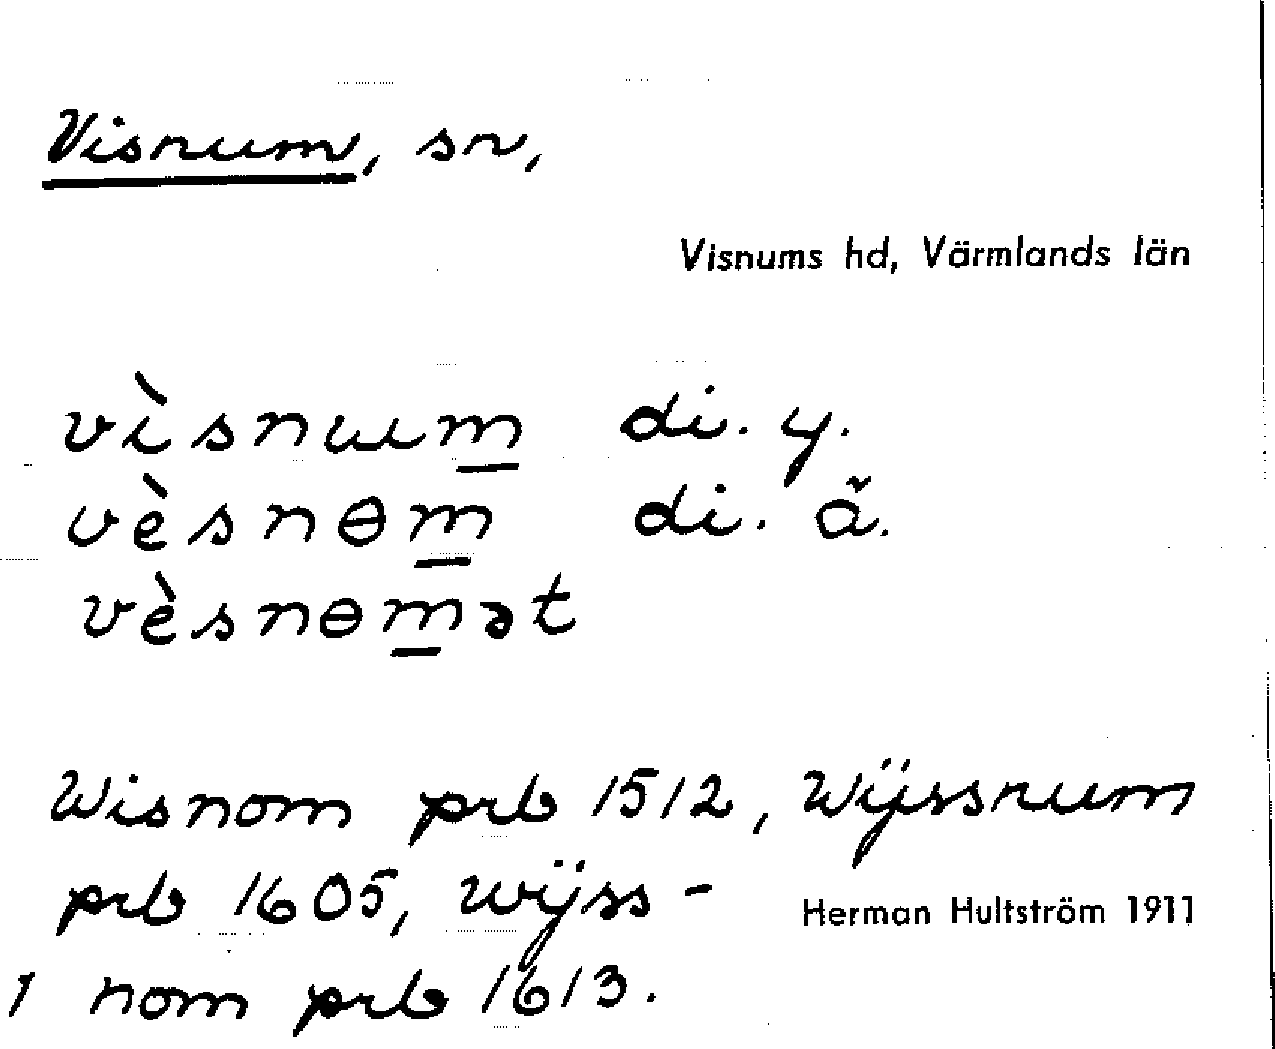 Visnum, sn,
Visnums hd, Värmlands län
vìsnɯm di. y.
vèsnɵm di. ă.
vèsnɵmət
Wisnom prb 1512, Wÿssnum
prb 1605, wÿss-
Herman Hultström 1911
1 nom prb 1613.